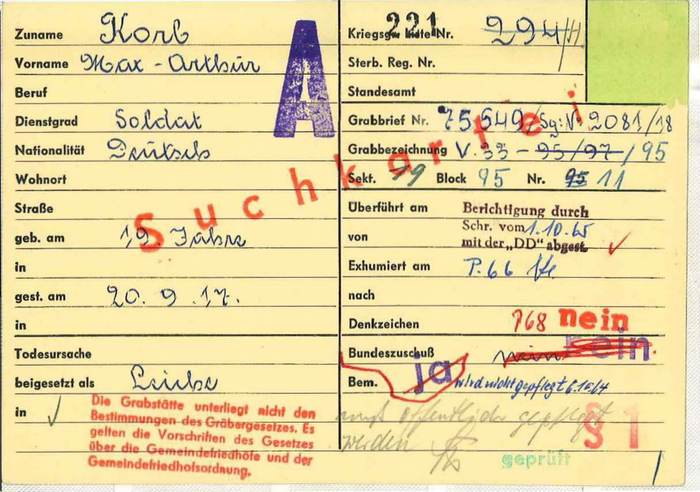 Zuname Korb
Vorname Max - Arthur
Beruf
Dienstgrad Soldat
Nationalität Deutsch
Wohnort
Straße
geb. am 19 Jahre
in
gest. am 20. 9. 17.
in
Todesursache
beigesetzt als Leiche
in ✓
Die Grabstätte unterliegt nicht den
Bestimmungen des Gräbergesetzes. Es
gelten die Vorschriften des Gesetzes
über die Gemeindefriedhöfe und der
Gemeindefriedhofsordnung.
A
Suchkartei
221
Nr. 294/
Sterb. Reg. Nr.
Standesamt
Grabbrief Nr. 75549/ 2081/18
Grabbezeichnung V. 33 - 95/97/95
Sekt. Block 95 Nr. 95 11
Überführt am
von
Berichtigung durch
Schr. vom 1.10.65
mit der „DD" abgest. ✓
Exhumiert am P. 66
nach
Denkzeichen 768 nein
Bundeszuschuß nein nein
Bem. ja wird nicht gepflegt
öffentlich gepflegt
werden
§ 1
geprüft